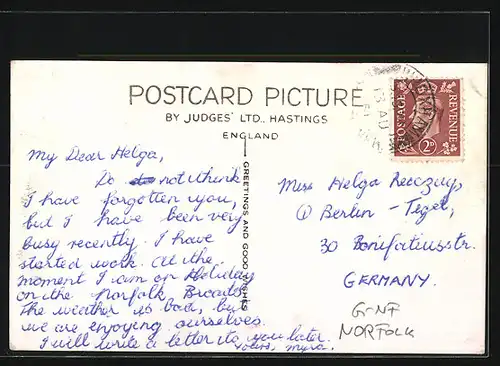 POSTCARD PICTURE
BY JUDGES' LTD., HASTINGS
ENGLAND
GREETINGS AND GOOD WISHES
POSTAGE REVENUE
2D
13 AU
My Dear Helga,
Do not think
I have forgotten you,
but I have been very
busy recently. I have
started work. At the
moment I am on Holiday
on the Norfolk Broads
the weather is bad, but
we are enjoying ourselves.
I will write a letter to you later.
Yours, Myra.
Miss Helga
Berlin - Tegel,
30 Bonifatiusstr.
GERMANY.
G-NF
NORFOLK